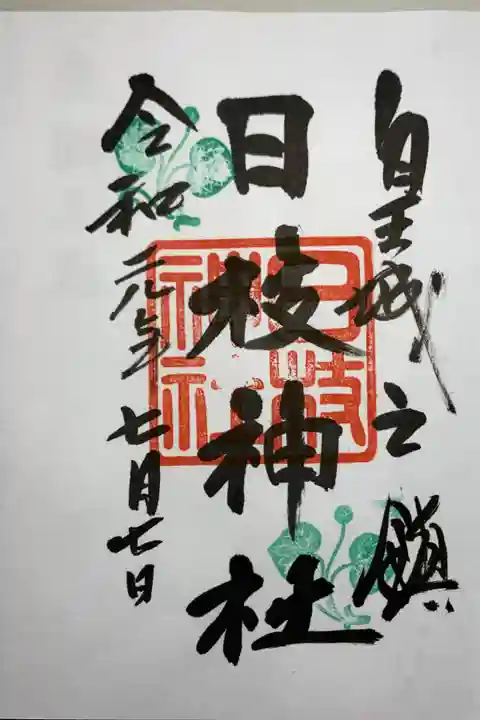 皇城之鎮
日枝神社
令和元年七月七日
日枝神社